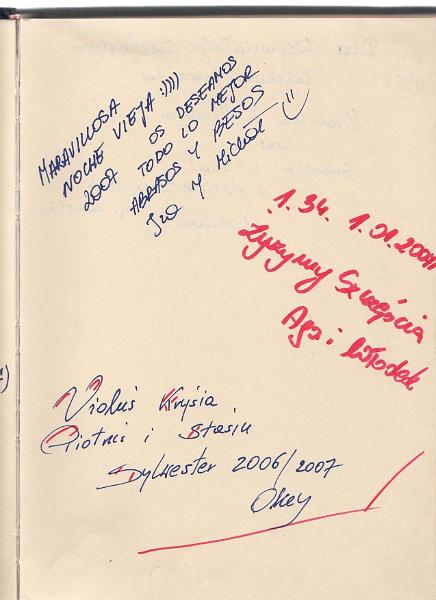 MARAVILLOSA
NOCHE VIEJA :))))
OS DESEANOS
2007 TODO LO MEJOR
ABRASOS Y BESOS
Iza y Michał
1.34. 1.01.2007r
Życzymy Szczęścia
Aga i Włodek
Violuś Krysia
Piotruś i Stasiu
Sylwester 2006/2007
Okey